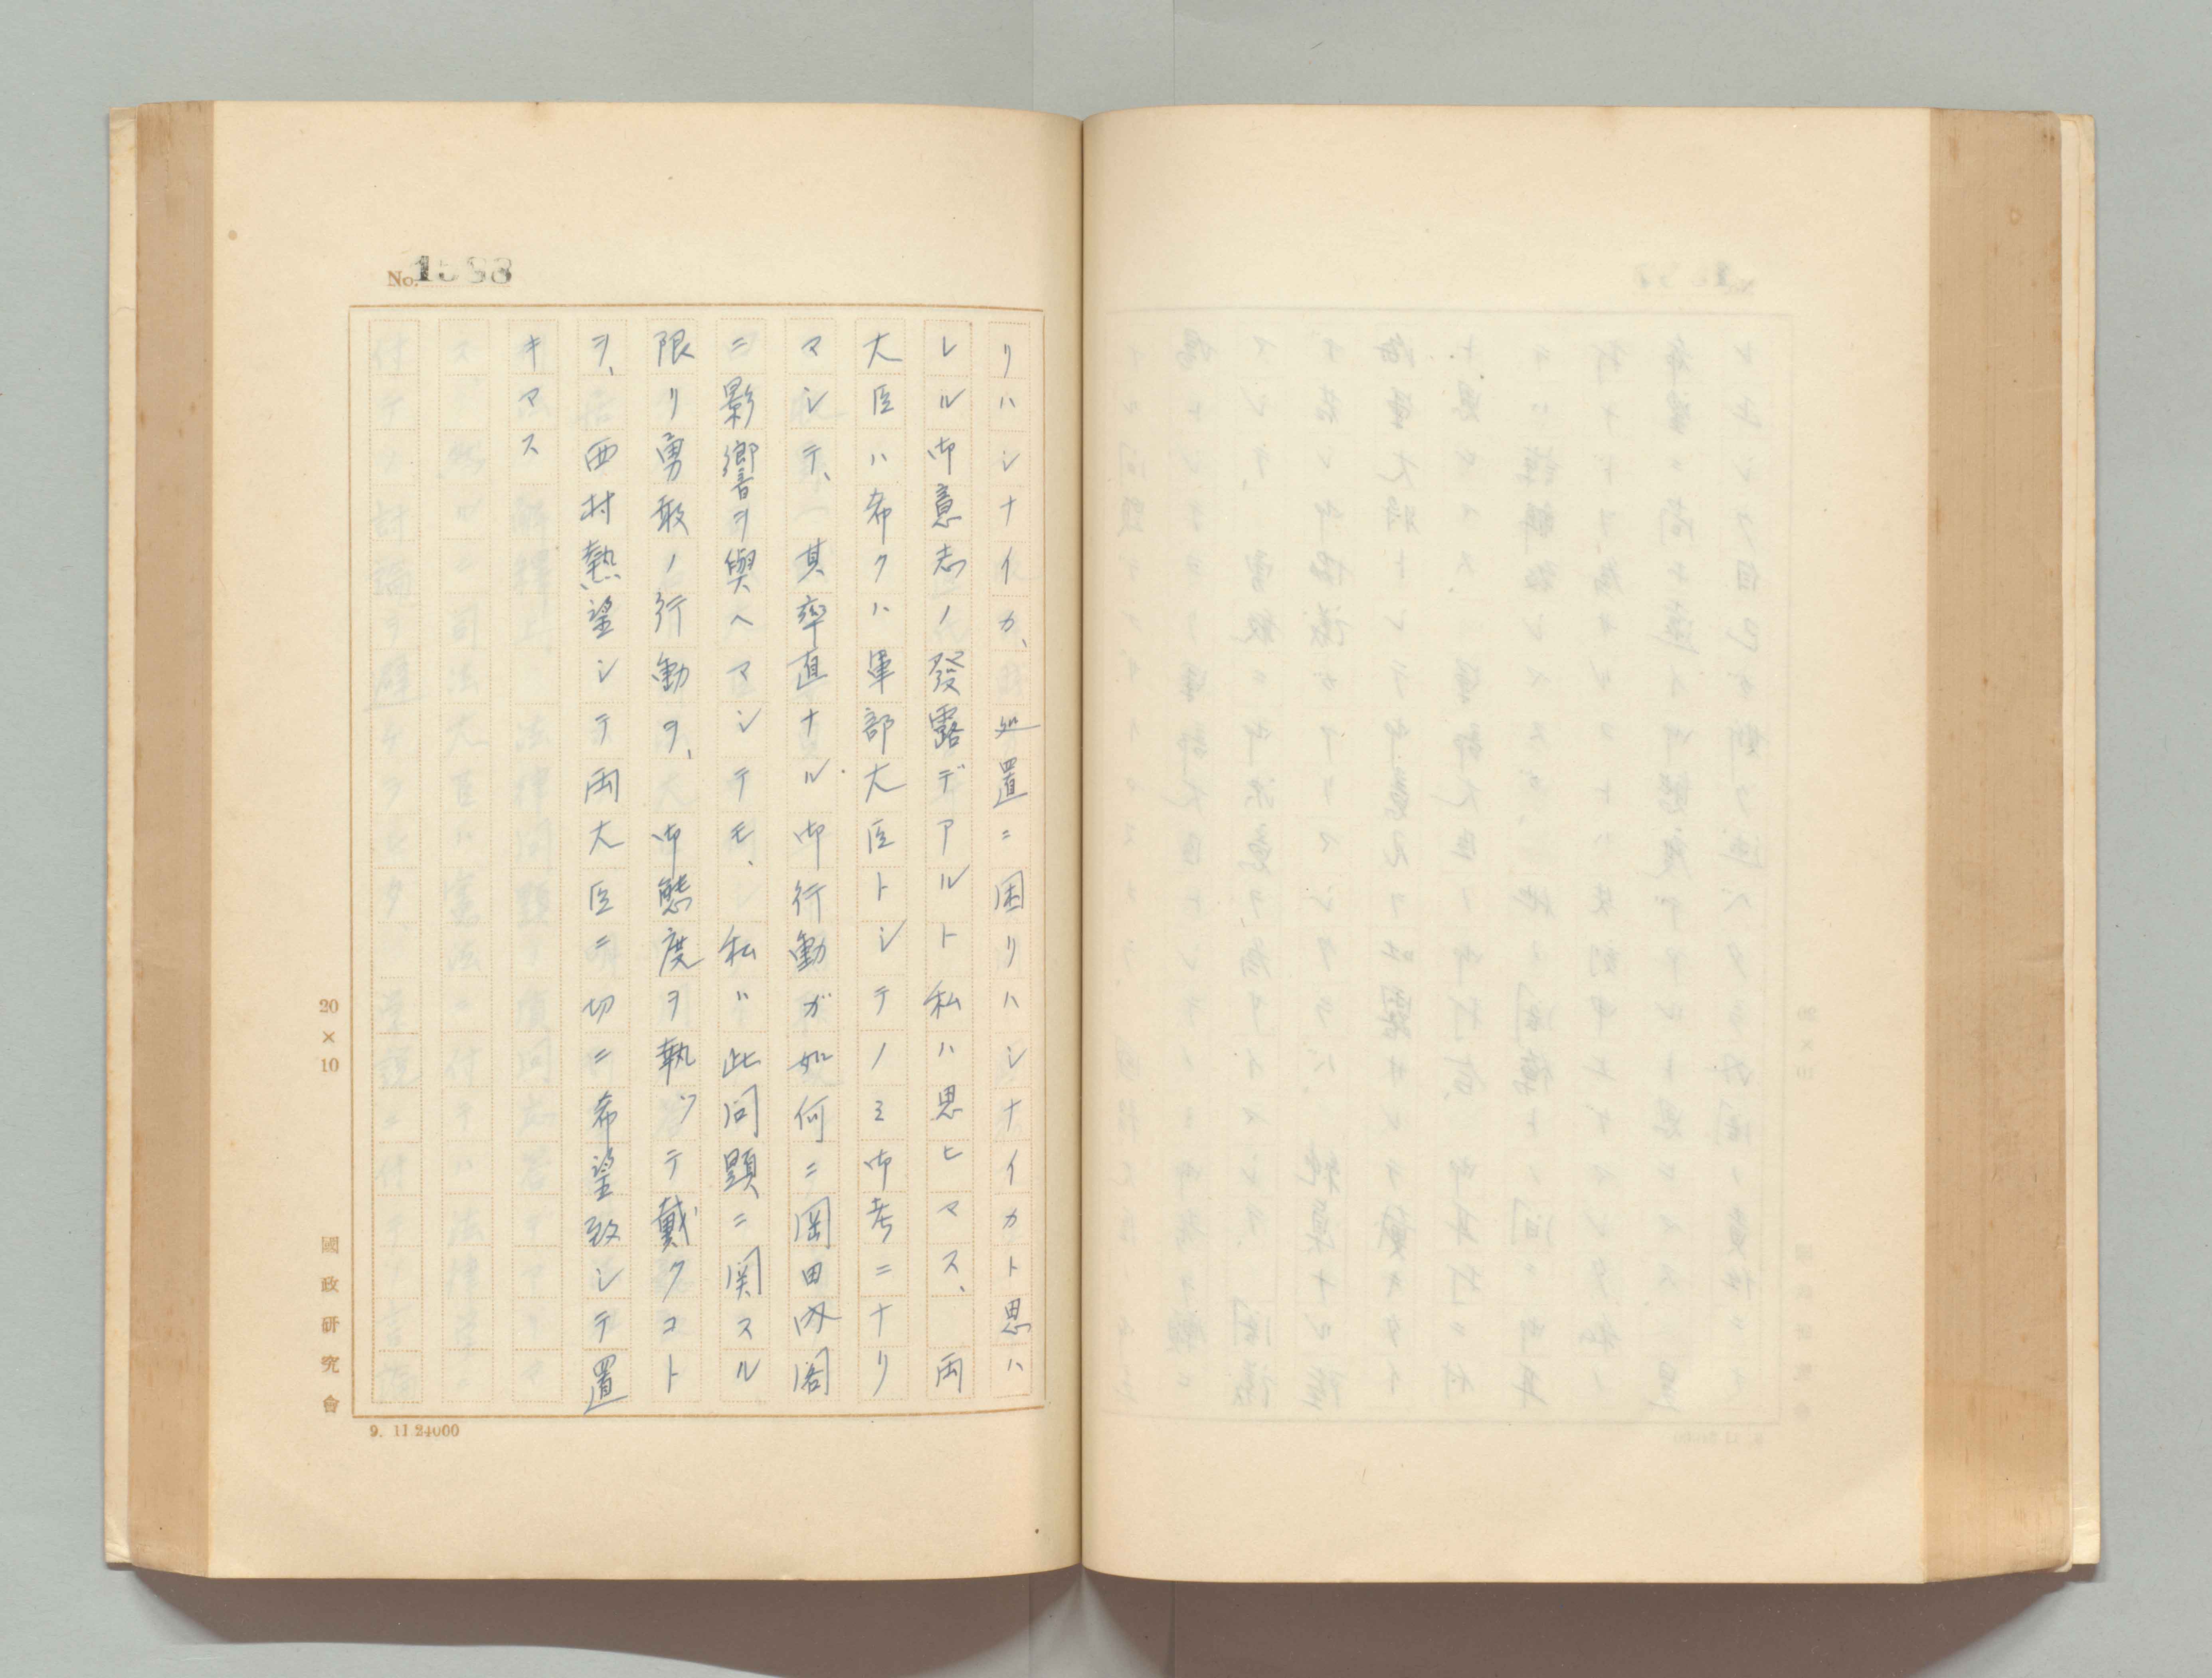 No.1588
リハシナイカ、処置ニ困リハシナイカト思ハ
レル御意志ノ發露デアルト私ハ思ヒマス、両
大臣ハ希クハ軍部大臣トシテノミ御考ニナリ
マシテ、其率直ナル御行動ガ如何ニ岡田内閣
ニ影響ヲ與ヘマシテモ、私ハ此問題ニ関スル
限リ勇敢ノ行動ヲ、御態度ヲ執ツテ戴クコト
ヲ、西村熱望シテ両大臣ニ切ニ希望致シテ置
キマス
20×10
國政研究會
9. 11.24000